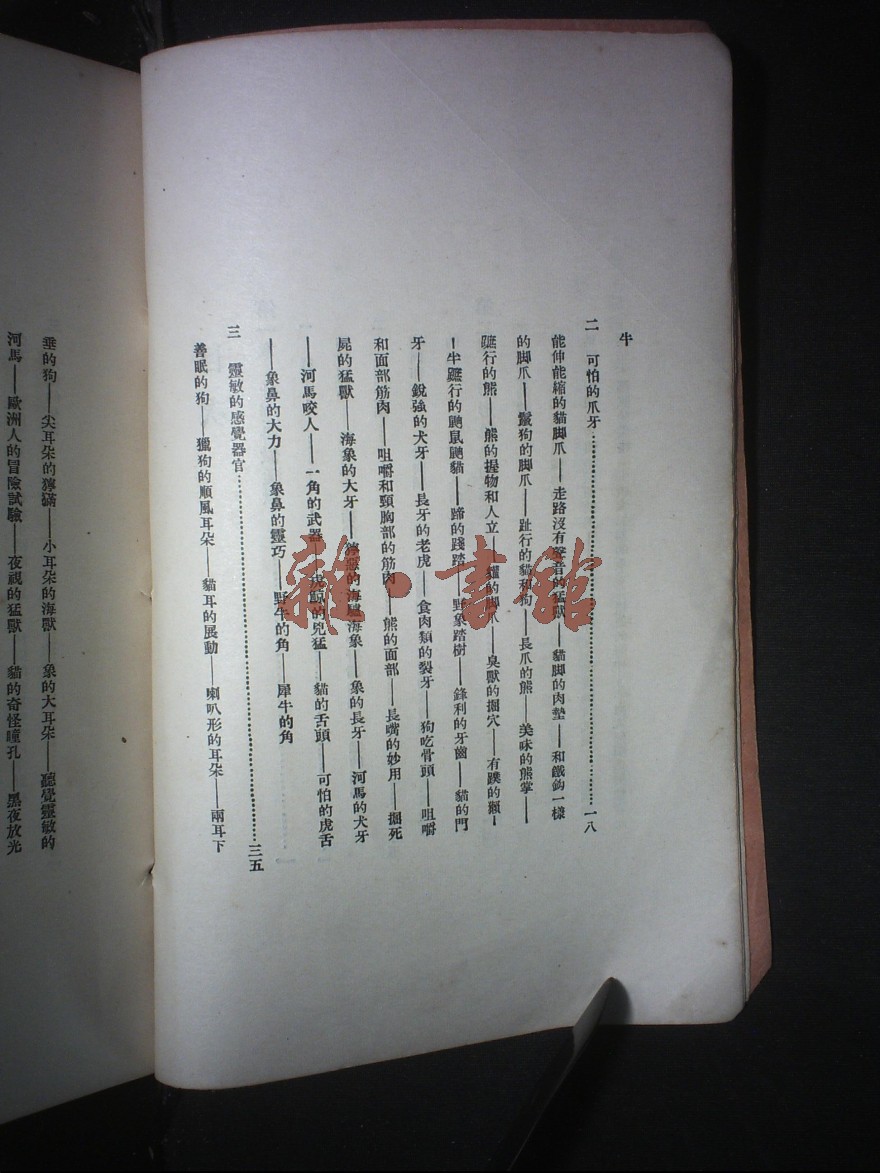 牛
二 可怕的爪牙……………………一八
能伸能縮的貓脚爪——走路沒有聲音的猛獸——貓脚的肉墊——和鐵鈎一樣
的脚爪——鬣狗的脚爪——趾行的貓和狗——長爪的熊——美味的熊掌——
蹠行的熊——熊的握物和人立——貛的脚爪——臭獸的掘穴——有蹼的獺—
—半蹠行的鼬鼠鼬貓——蹄的踐踏——野象踏樹——鋒利的牙齒——貓的門
牙——銳強的犬牙——長牙的老虎——食肉類的裂牙——狗吃骨頭——咀嚼
和面部筋肉——咀嚼和頸胸部的筋肉——熊的面部——長嘴的妙用——掘死
屍的猛獸——海象的大牙——獰惡的海驢海象——象的長牙——河馬的犬牙
——河馬咬人——一角的武器——虎鯨的兇猛——貓的舌頭——可怕的虎舌
——象鼻的大力——象鼻的靈巧——野牛的角——犀牛的角
三 靈敏的感覺器官……………………三五
善眠的狗——獵狗的順風耳朵——貓耳的展動——喇叭形的耳朵——兩耳下
垂的狗——尖耳朵的——小耳朵的海獸——象的大耳朵——聽覺靈敏的
河馬——歐洲人的冒險試驗——夜視的猛獸——貓的奇怪瞳孔——黑夜放光
雜·書館